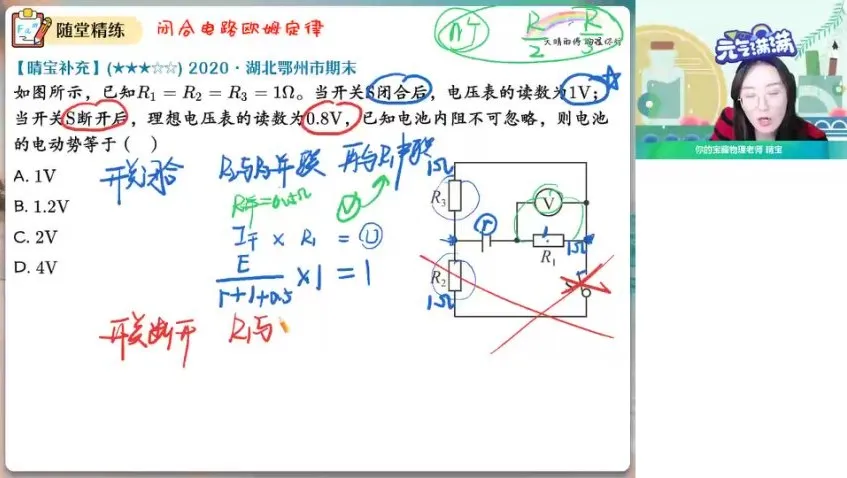 随堂精练 闭合电路欧姆定律
n个 R/2 R/3
【晴宝补充】(★★★☆☆) 2020·湖北鄂州市期末
如图所示，已知R₁ = R₂ = R₃ = 1Ω。当开关S闭合后，电压表的读数为1V；
当开关S断开后，理想电压表的读数为0.8V，已知电池内阻不可忽略，则电池
的电动势等于（ ）
A. 1V
B. 1.2V
C. 2V
D. 4V
开关闭合
R并=0.5Ω
I干 × R₁ = U
E/(r+1+0.5) ×1 = 1
开关断开 R₁与
1Ω
R₃
V
r
1Ω
R₁
R₂
1Ω
S
元气满满
你的宝藏物理老师 晴宝